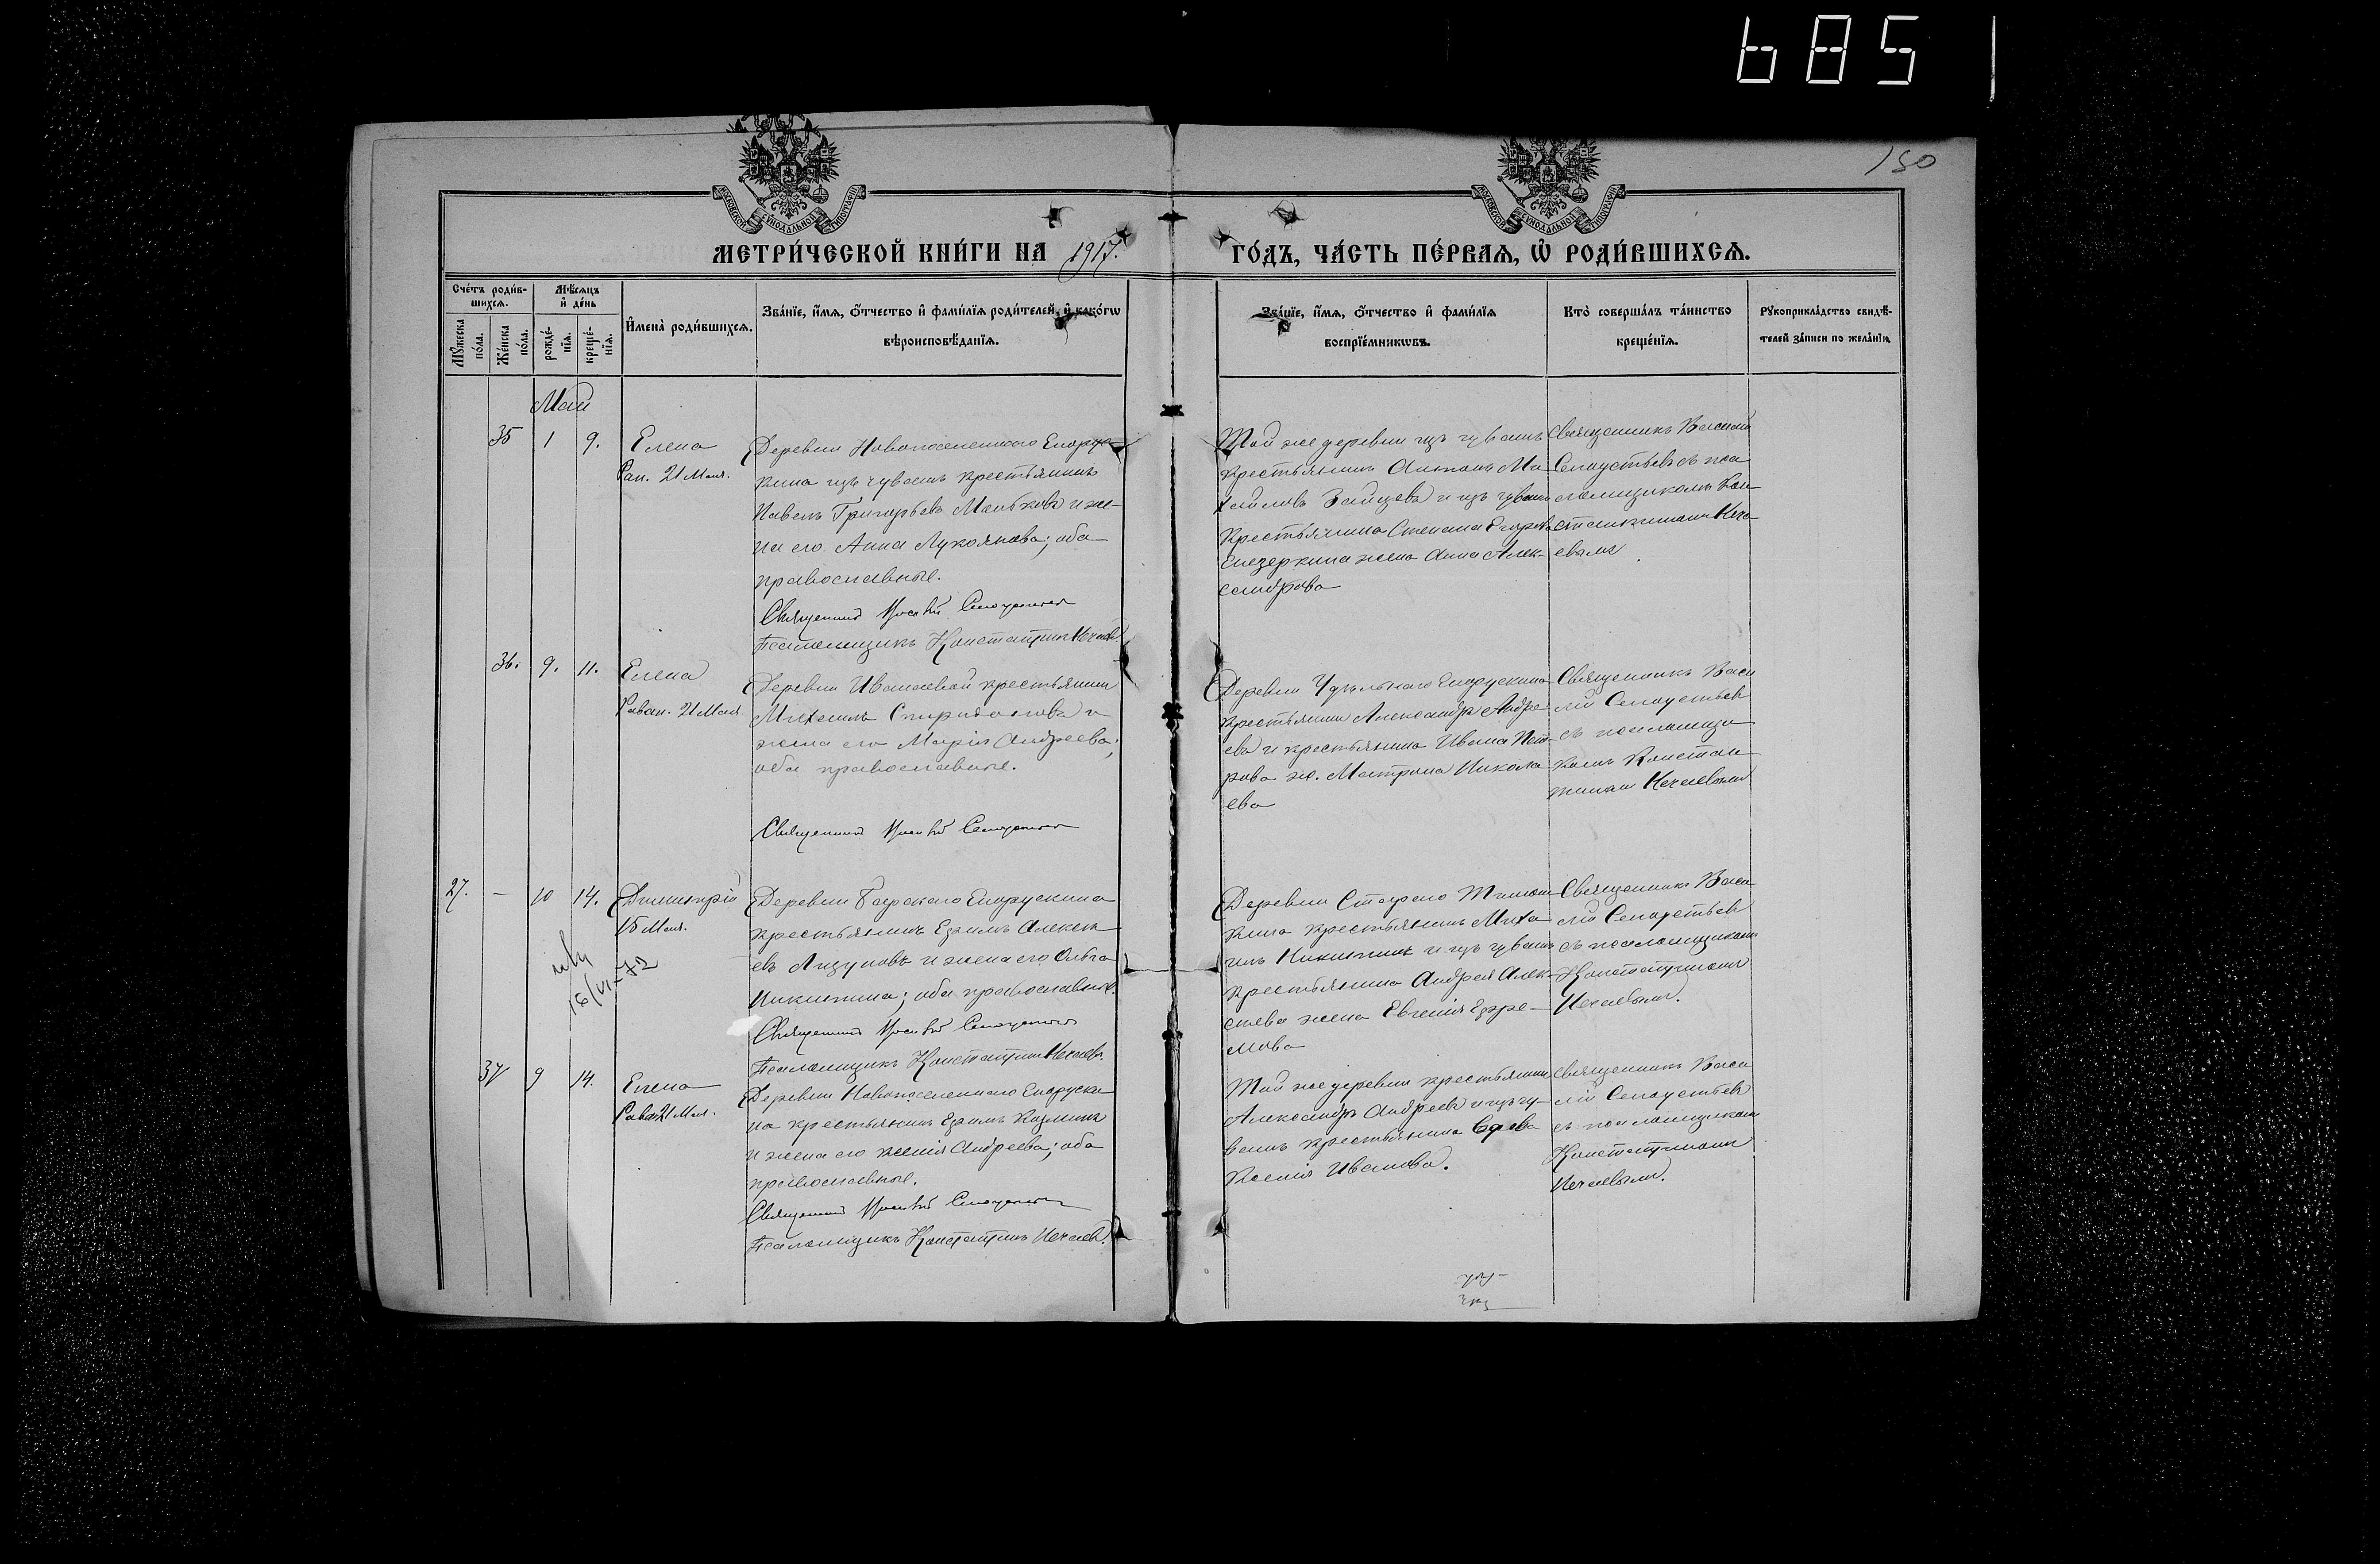 685
150
МОСКОВСКОЙ СѶНОДАЛЬНОЙ ТИПОГРАФІИ
МОСКОВСКОЙ СѶНОДАЛЬНОЙ ТИПОГРАФІИ
МЕТРИ́ЧЕСКОЙ КНИ́ГИ НА 1917. ГО́ДЪ, ЧА́СТЬ ПЕ́РВАЯ, Ѡ҆ РОДИ́ВШИХСЯ.
Сче́тъ роди́в-
шихся.
Мѣ́сяцъ
и҆ де́нь
Мꙋ́жеска
по́ла.
Же́нска
по́ла.
рожде́-
нїѧ.
креще́-
нїѧ.
И҆мена̀ роди́вшихся.
Зва́нїе, и҆́мя, ѻ҆́тчество и҆ фами́лїя роди́телей, и҆ како́гѡ
вѣроисповѣ́данїя.
Зва́нїе, и҆́мя, ѻ҆́тчество и҆ фами́лїя
воспрїе́мникѡвъ.
Кто̀ соверша́лъ та́инство
креще́нїя.
Рꙋкоприкла́дство свидѣ́-
телей за́писи по жела́нїю.
Май
35 1 9. Елена
Рап. 21 Мая.
Деревни Новопоселеннаго Енорус
кина изъ чувашъ крестьянинъ
Павелъ Григорьевъ Маньковъ и же-
на его Анна Лукоянова; оба
православные.
Священникъ Василій
Псаломщикъ Константинъ Нечаевъ
Той же деревни изъ чувашъ
крестьянинъ Антонъ Ми
хайловъ Зайцевъ и изъ чувашъ
крестьянина Степана Егорова
жена Анна Алек-
сандрова
Священникъ Василій
съ пса
ломщикомъ Кон
стантиномъ Неча
евымъ
36. 9. 11. Елена
21 Мая
Деревни Ивановой крестьянинъ
Михаилъ Спиридоновъ и
жена его Марія Андреева;
оба православные.
Священникъ Василій
Деревни Удѣльнаго Енорускина
крестьянинъ Александръ Андре
евъ и крестьянина Ивана Пет
рова ж. Матрона Никола
ева
Священникъ Васи
лій
съ псаломщи
комъ Констан
тиномъ Нечаевымъ
27. - 10 14. Димитрій
15 Мая.
16/VI-72
Деревни Боярскаго Енорускина
крестьянинъ Ефимъ Алексѣ
евъ Лизуновъ и жена его Ольга
Никитина; оба православные.
Священникъ Василій
Псаломщикъ Константинъ Нечаевъ.
Деревни Стараго
кина крестьянинъ Миха
илъ Никитинъ и изъ чувашъ
крестьянина Андрея Алек-
сѣева жена Евгенія Ефре-
мова
Священникъ Васи
лій
съ псаломщикомъ
Константиномъ
Нечаевымъ.
37 9 14. Елена
21 Мая.
Деревни Новопоселеннаго Еноруски
на крестьянинъ Ефимъ Козминъ
и жена его Ксенія Андреева; оба
православные.
Священникъ Василій
Псаломщикъ Константинъ Нечаевъ.
Той же деревни крестьянинъ
Александръ Андреевъ и изъ чу-
вашъ крестьянина
Ксенія Иванова.
Священникъ Васи
лій
съ псаломщикомъ
Константиномъ
Нечаевымъ.